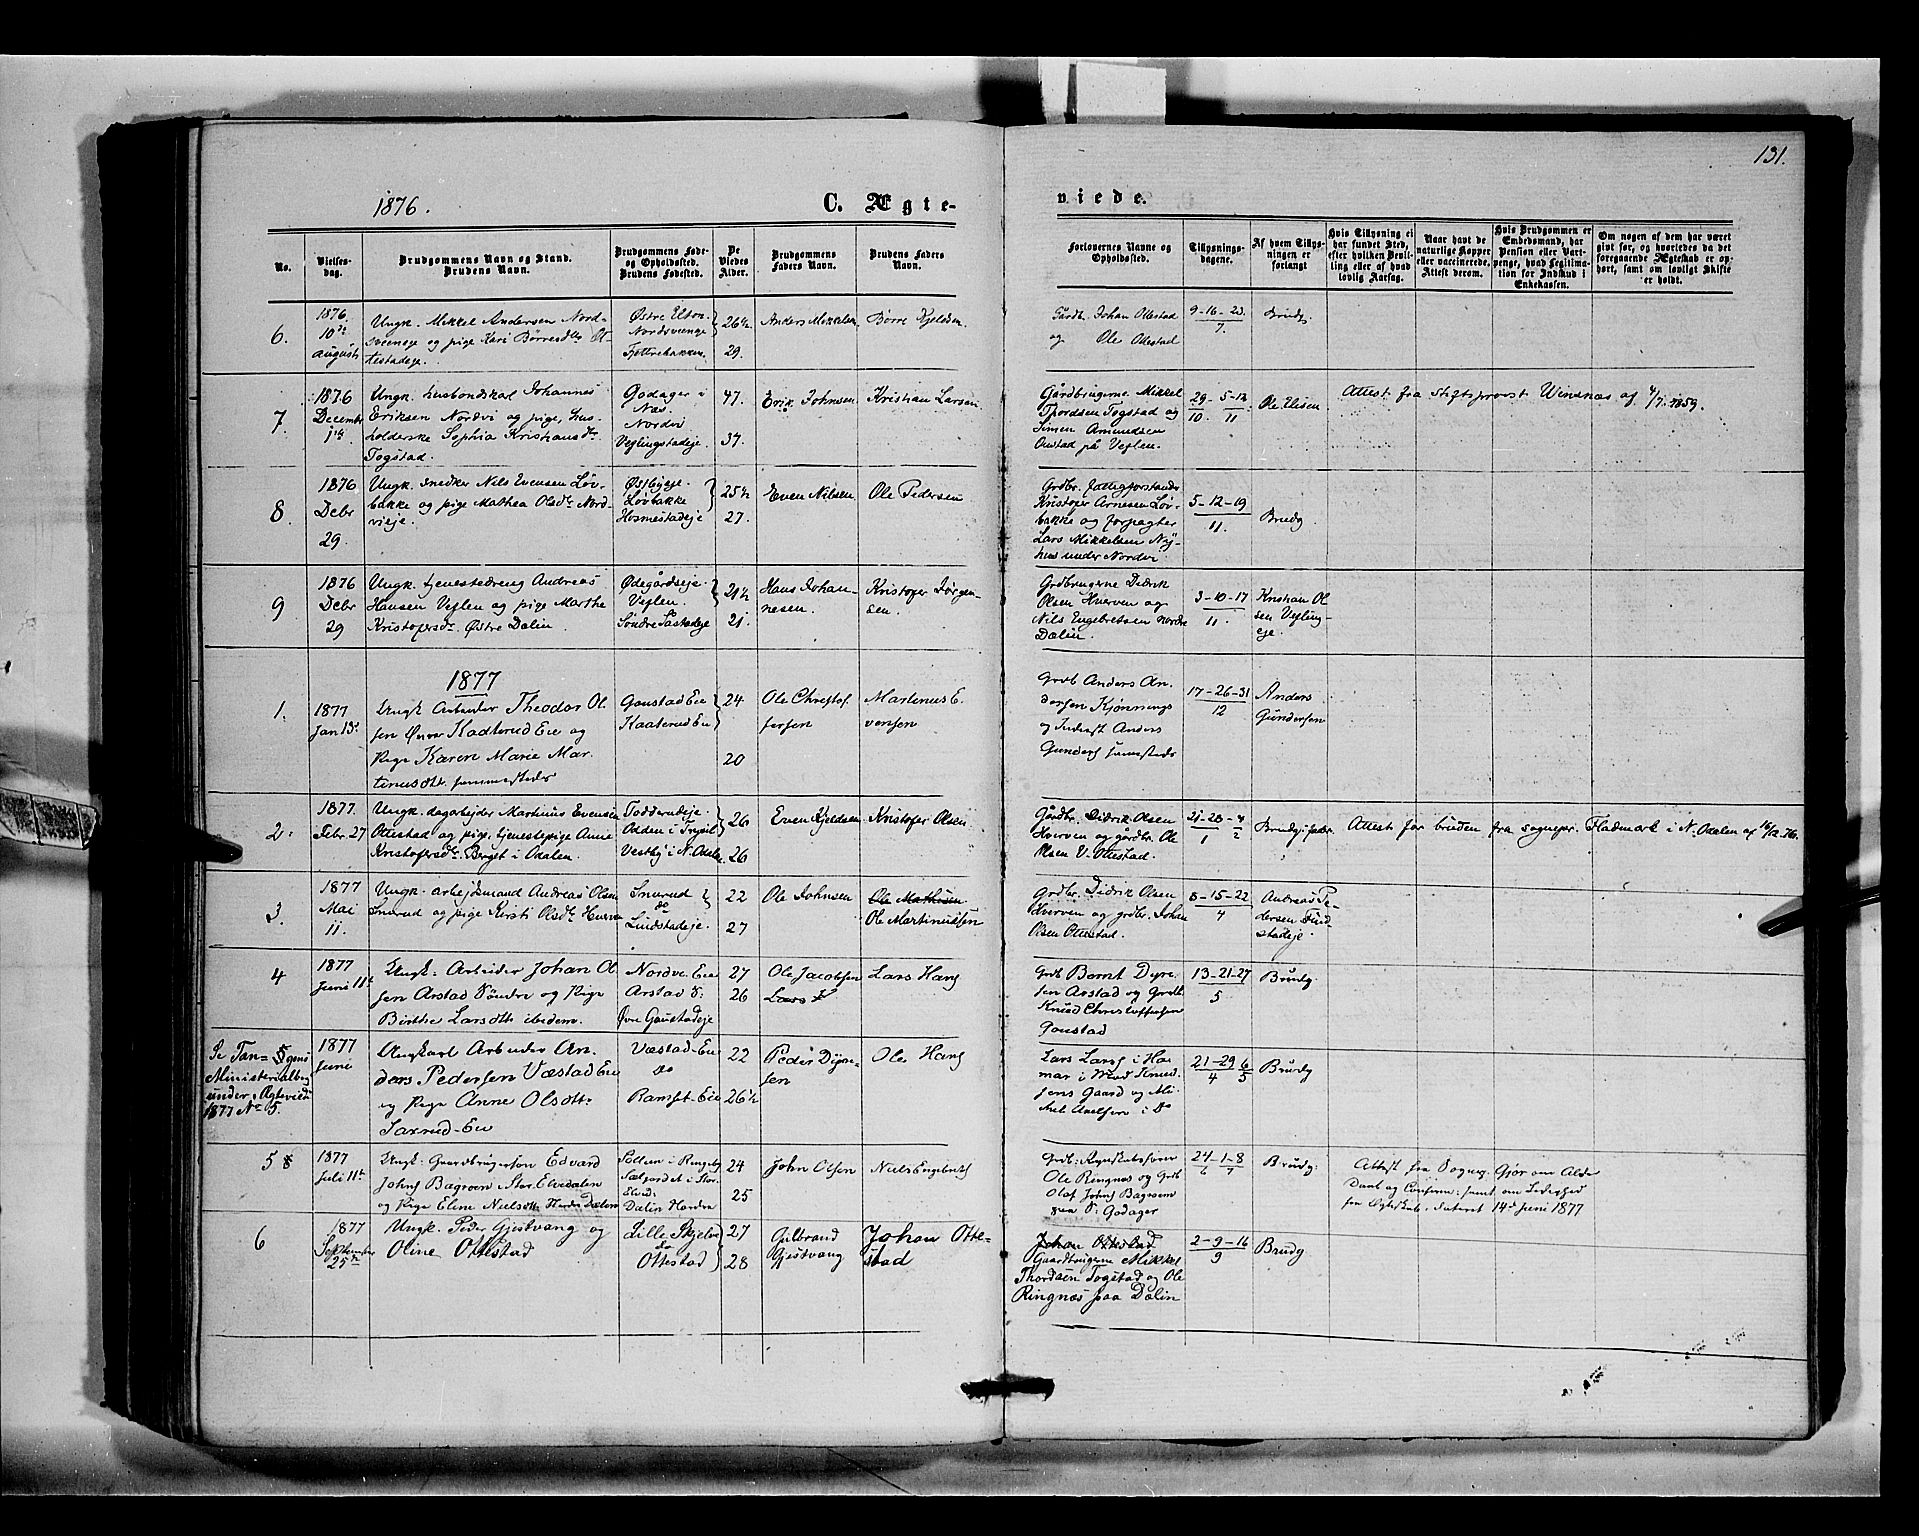 131.
1876.
C. Ægte-
viede.
No.
Vielses-
dag.
Brudgommens Navn og Stand.
Brudens Navn.
Brudgommens Føde-
og Opholdssted.
Brudens Fødested.
De
Viedes
Alder.
Brudgommens
Faders Navn.
Brudens Faders
Navn.
Forlovernes Navne og
Opholdssted.
Tillysnings-
dagene.
Af hvem Tillys-
ningen er
forlangt
Hvis Tillysning ei
har fundet Sted,
efter hvilken Bevil-
ling eller af hvad
lovlig Aarsag.
Naar havt de
naturlige Kopper
eller vaccinerede.
Attest derom.
Hvis Brudgommen er
Embedsmand, har
Pension eller Vart-
penge, hvad Legitima-
tion for Indskud i
Enkekassen.
Om nogen af dem har været
gift før, og hvorledes da det
foregaaende Ægteskab er op-
hørt, samt om lovligt Skifte
er holdt.
6.
1876.
10de
August
Ungk. Mikkel Andersen Nord-
sveenge og pige Kari Børresdtr Ot-
testadeje.
Østre Elton
Nordsveenge
Fjettrebakken.
26½
29.
Anders Mikkelsen
Børre Kjeldsen
Gårdb. Johan Ottestad
og Ole Ottestad
9-16-23
7.
Brudg.
7.
1876
Decembr
1ste
Ungk. husbondskarl Johannes
Eriksen Nordvi og pige, hus-
holderske Sophia Kristiansdtr
Togstad.
Godager i
Næs.
Nordvi
Vejlingstadeje
47.
37.
Erik Johnsen
Kristian Larsen
Gårdbrugerne Mikkel
Thordsen Togstad og
Simen Amundsen
Onstad på Vejlen.
29-5-12
10 11
Ole Elisen
Attest fra Stiftsprovst Winsnes af 4/7 1859.
8.
1876
Decbr
29.
Ungk. snedker Nils Evensen Løv-
bakke og pige Mathea Olsdtr Nord-
vieje.
Østbyeje.
Løvbakke
Hosmestadeje
25½
27.
Even Nilsen
Ole Pedersen
Grdbr. fattigforstander
Kristofer Arnesen Løv-
bakke og forpagter
Lars Mikkelsen Ny-
hus under Nordvi
5-12-19
11.
Brudg
9
1876
Decbr
29
Ungk. tjenestedreng Andreas
Hansen Vejlen og pige Marthe
Kristofersdtr. Østre Dælin
Ødegårdseje.
Vejlen.
Søndre Sæstadeje
21½
21.
Hans Johan-
nesen.
Kristofer Jørgen-
sen.
Grdbrugerne Didrik
Olsen Hverven og
Nils Engebretsen nordre
Dælin.
3-10-17
11.
Kristian Ol
sen Vejling-
eje.
1877
1.
1877
Jan 13de
Ungk Arbeider Theodor Ol-
sen Øvre Kaaterud Eie og
Pige Karen Marie Mar-
tinusdtr. sammesteds
Gaustad Eie
Kaaterud Eie
24
20
Ole Christof-
fersen
Martinus E-
vensen
Grdb Anders An-
dersen Kjønnerings
og Inderst Anders
Gunders sammesteds
17-26-31
12
Anders
Gundersen
2.
1877.
Febr. 27
Ungk. dagarbejder Martinius Evensen
Ottestad og pige, tjenestepige Anne
Kristofersdtr. Berget i Odalen.
Todderudeje.
Odden i Trysil
Vestby i N. Odalen
26
26
Even Kjeldsen
Kristofer Olsen
Gårdbr. Didrik Olsen
Hverven og gårdbr. Ole
Olsen V. Ottestad.
21-28-4
1 2
Brudgs fader.
Attest for bruden fra sognepr. Fladmark i N. Odalen af 16/12 76.
3.
1877
Mai
11.
Ungk. arbejdsmand Andreas Olsen
Snerud og pige Kirsti Olsdtr Hverven
Snerud
do
Lundstadeje.
22
27
Ole Johnsen
Ole Mathisen
Ole Martinussen
Grdbr. Didrik Olsen
Hverven og grdbr. Johan
Olsen Ottestad.
8-15-22
4
Andreas Pe-
dersen Lund-
stadeje.
4
1877
Juni 11te
Ungk: Arbeider Johan Ol-
sen Arstad Søndre og Pige
Birthe Larsdtr ibidem.
Nordvi Eie
Arstad S:
Øvre Gaustadeje
27
26
Ole Jacobsen
Lars
Lars Hans
Grdb Bernt Dyre-
sen Arstad og Grdb.
Knud Christoffersen
Gaustad
13-21-27
5
Brudg
Se Tan-
gens
Ministerialbog
under Ægteviede
1877 No 5.
5
1877
Juni
Ungkarl Arbeider An-
ders Pedersen Væstad Eie
og Pige Anne Olsdtr.
Saxrud-Eie
Væstad-Eie
do
Ramset-Eie
22
26½
Peder Dyre-
sen
Ole Hans
Lars Lang i Ha-
mar i Mad Knud-
sens Gaard og Mi-
kel Axelsen i Do
21-29 6
4 5
Brudg
5
1877
Juli 11te
Ungk: Gaardbrugersøn Edvard
Johns Bagroen i Stor Elvedalen
og Pige Eline Nielsdtr Nordre Dælin
24
25
John Olsen
Niels Engebrets
Grdb: Regnskabsfører
Ole Ringnæs og Grdb
Olaf Johns Bagroen
paa S: Godager
24-1-8
6 7
Brudg:
Attest fra Sognepr. Gjør om Alder
Daab og Confirm: samt om Ledighed
for Ægteskab, dateret 14de Juni 1877
6
1877
September
25de
Ungk. Peder Gjestvang og
Oline Ottestad
Lille Skjelve
do
Ottestad
27
28
Gulbrand
Gjestvang
Johan Otte-
stad
Johan Ottestad
Gaardbrugerne Mikkel
Thordsen Togstad og Ole
Ringnæs paa Dælin
2-9-16
9
Brudg